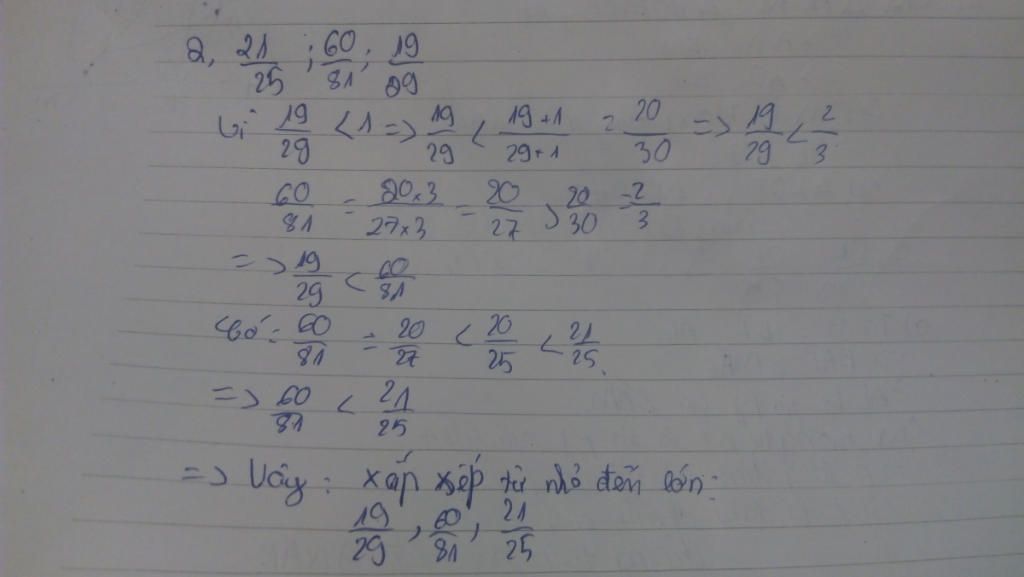 2, 21/25 ; 60/81 ; 19/29
Vì 19/29 < 1 => 19/29 < 19+1/29+1 = 20/30 => 19/29 < 2/3
60/81 = 20x3/27x3 = 20/27 > 20/30 = 2/3
=> 19/29 < 60/81
Có: 60/81 = 20/27 < 20/25 < 21/25.
=> 60/81 < 21/25
=> Vậy: xắp xếp từ nhỏ đến lớn:
19/29 , 60/81 , 21/25